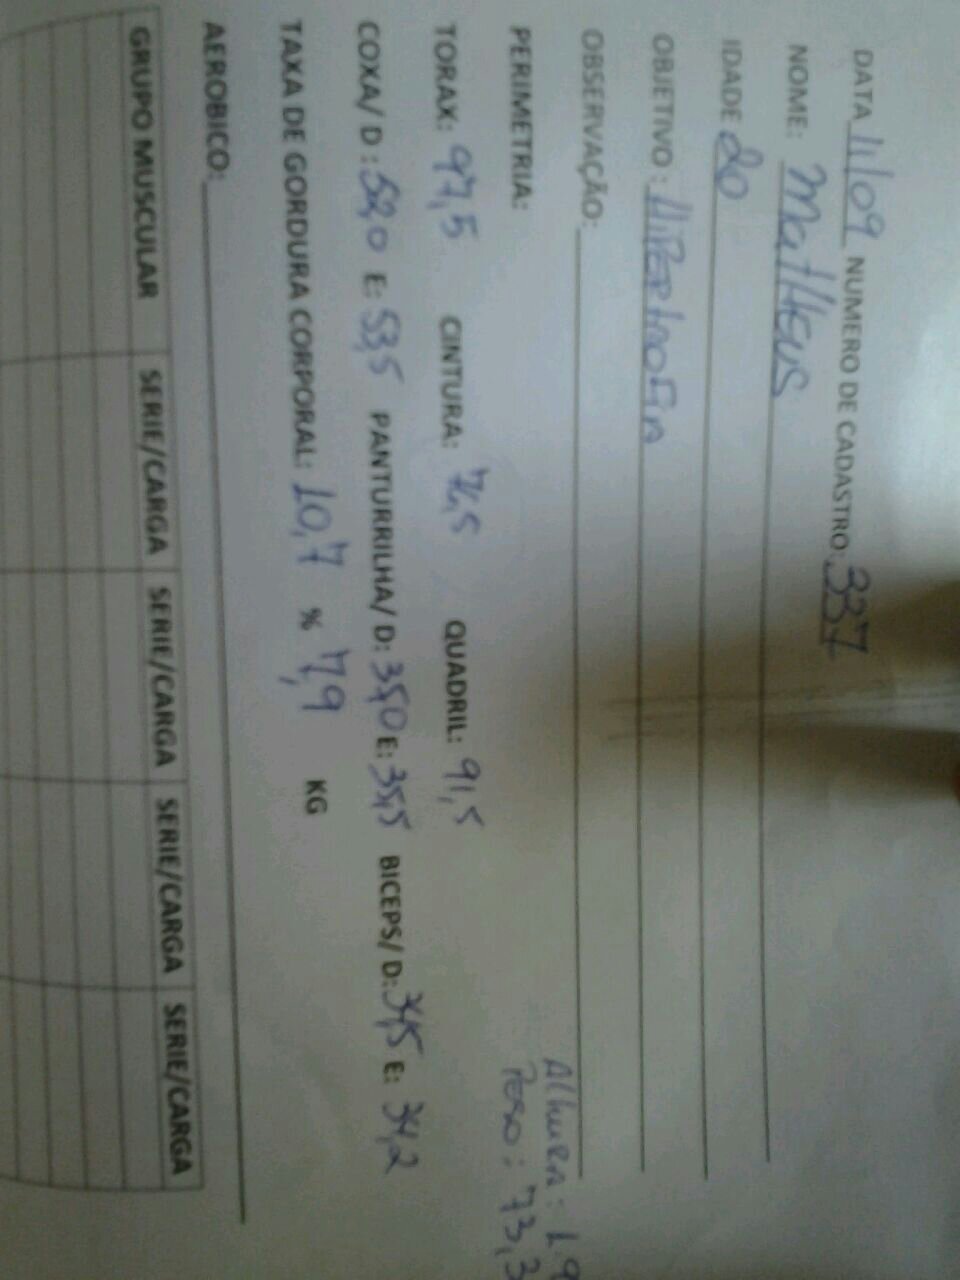 DATA 11/09 NUMERO DE CADASTRO: 337
NOME: MatHeus
IDADE 20
OBJETIVO: HiPERtROFiA
OBSERVAÇÃO:
Altura: 1.9
Peso: 73,3
PERIMETRIA:
TORAX: 97,5 CINTURA: 76,5 QUADRIL: 91,5
COXA/ D: 52,0 E: 53,5 PANTURRILHA/ D: 35,0 E: 35,5 BICEPS/ D: 34,5 E: 34,2
TAXA DE GORDURA CORPORAL: 10,7 % 7,9 KG
AEROBICO:
GRUPO MUSCULAR SERIE/CARGA SERIE/CARGA SERIE/CARGA SERIE/CARGA